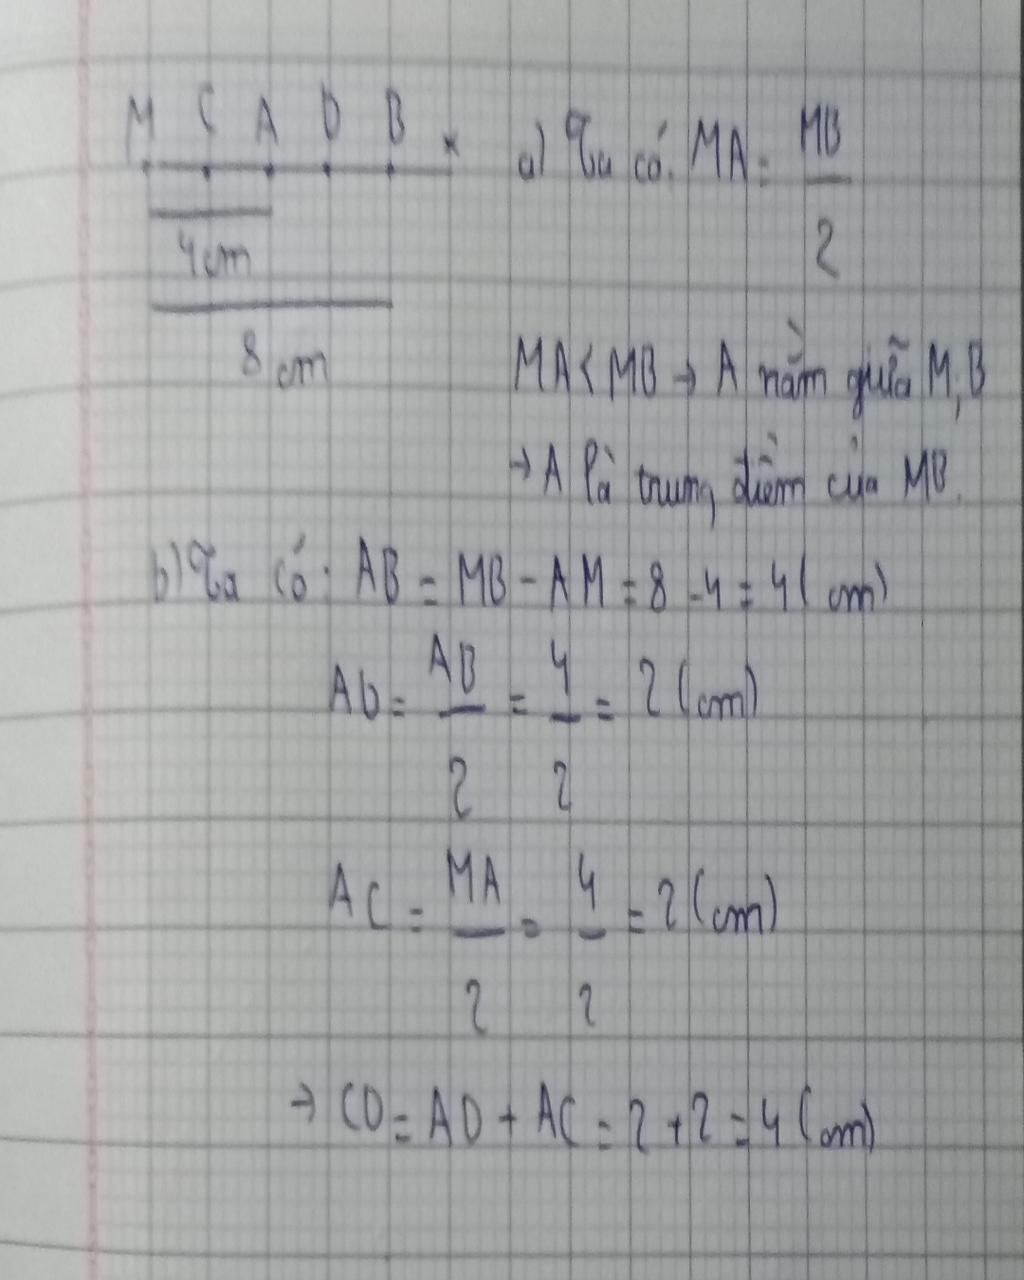 M C A D B x
4cm
8 cm
a) Ta có: MA = MB/2
MA < MB → A nằm giữa M, B
→ A là trung điểm của MB.
b) Ta có: AB = MB - AM = 8 - 4 = 4 (cm)
AD = AB/2 = 4/2 = 2 (cm)
AC = MA/2 = 4/2 = 2 (cm)
→ CD = AD + AC = 2 + 2 = 4 (cm)